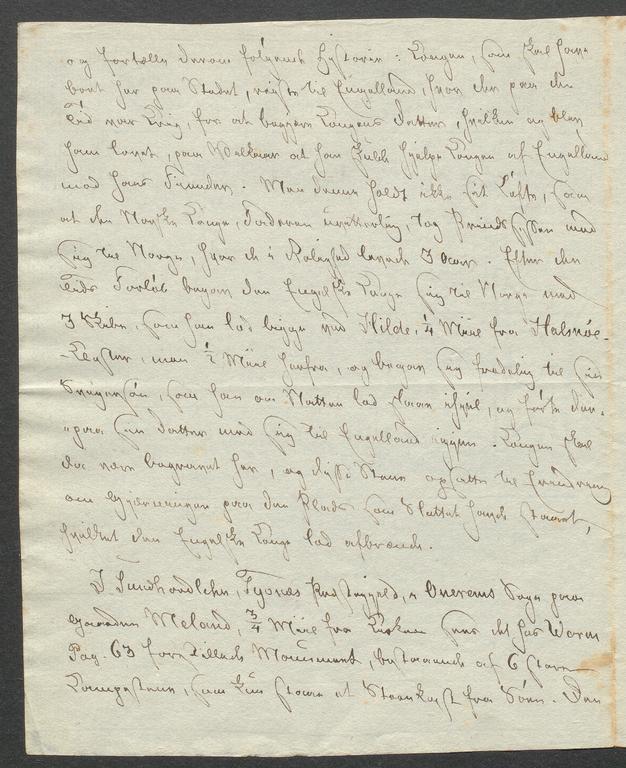 og fortælle derom følgende Historie: Kongen, som skal have
boet her paa Stedet, reiste til Engelland, hvor der paa den
Tid var Krig, for at begiere Kongens Datter, hvilken og blev
ham lovet, paa Vilkaar at han skulde hjelpe Kongen af Engelland
mod hans Fiender. Men denne holdt ikke sit Løfte, saa
at den Norske Konge, Faderen uvitterlig, tog Prindsessen med
sig til Norge, hvor de i Rolighed levede 3 Aar. Efter den
Tids Forløb begav den Engelske Konge sig til Norge med
3 Skibe, som han lod bygge ved Hilde, 1/4 Miil fra Halsnøe-
-Closter, men 1/2 Miil herfra, og begav sig fredelig til sin
Svigersøn, som han om Natten lod slaae ihjel, og førte der-
-paa sin Datter med sig til Engelland igjen. Kongen skal
da være begravet her, og disse Steene opsatte til Erindring
om Gjerningen paa den Plads hvor Slottet havde staaet,
hvilket den Engelske Konge lod afbrænde.
I Sundhordlehn, Tysnæs Præstegield, i Onerems Sogn paa
Gaarden Meland, 3/4 Miil fra Kirken sees det hos Worm
Pag. 63 forestillede Monument, bestaaende af 6 store
Kampesteene, som kun staae et Steenkast fra Søen. Den